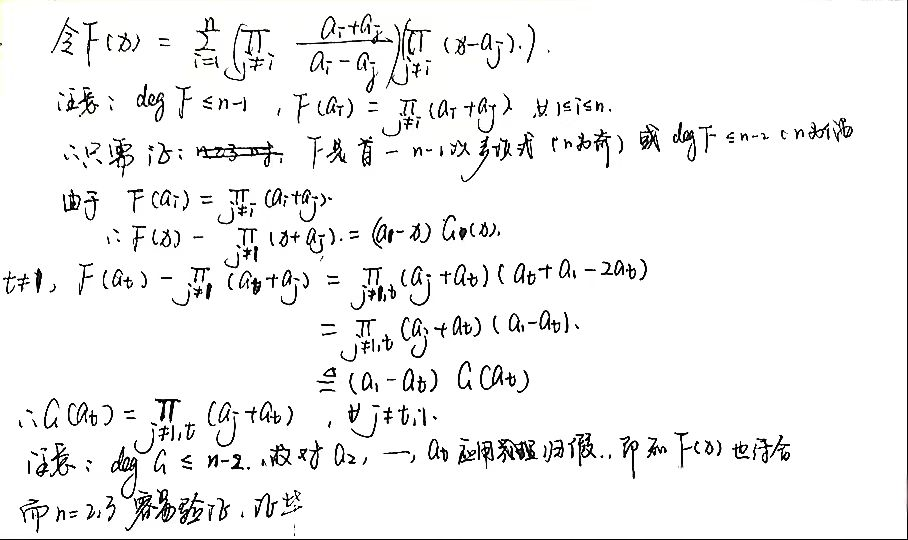 令F(x) = \sum_{i=1}^{n} (\prod_{j≠i} \frac{a_i+a_j}{a_i-a_j})(\prod_{j≠i} (x-a_j)).
注意: deg F ≤ n-1, F(a_i) = \prod_{j≠i} (a_i+a_j), ∀ 1≤i≤n.
∴只需证: F是首一n-1次多项式 (n为奇) 或 deg F ≤ n-2 (n为偶
由于 F(a_i) = \prod_{j≠i} (a_i+a_j).
∴ F(x) - \prod_{j≠1} (x+a_j) = (a_1-x) G(x).
t≠1, F(a_t) - \prod_{j≠1} (a_t+a_j) = \prod_{j≠1,t} (a_j+a_t) (a_t+a_1-2a_t)
= \prod_{j≠1,t} (a_j+a_t) (a_1-a_t).
≜ (a_1-a_t) G(a_t)
∴ G(a_t) = \prod_{j≠1,t} (a_j+a_t), ∀ j≠t,1.
注意: deg G ≤ n-2. 故对 a_2, …, a_n 应用归假, 即知 F(x) 也符合
而 n=2,3 容易验证, 证毕